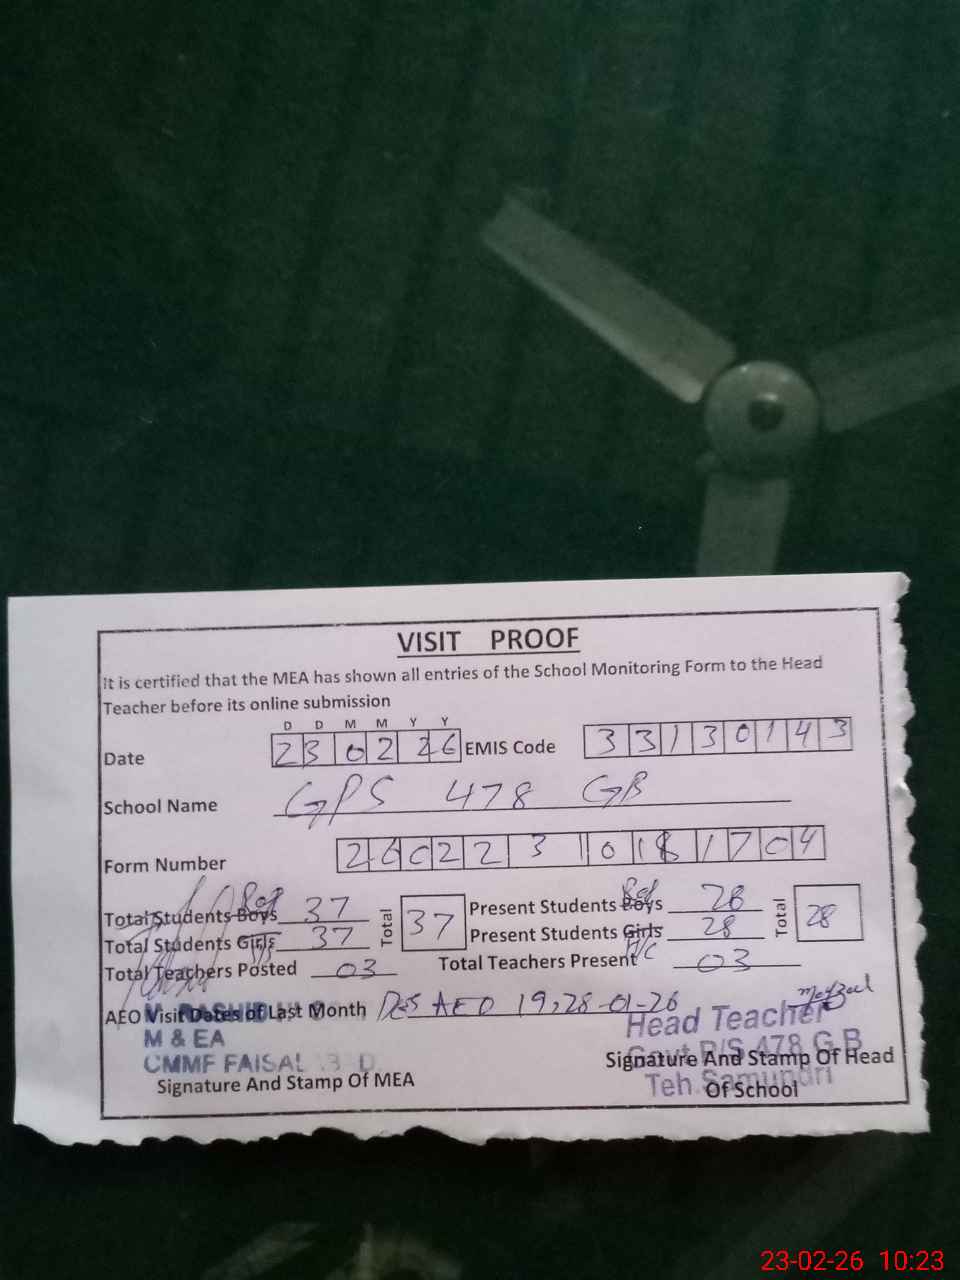 VISIT PROOF
It is certified that the MEA has shown all entries of the School Monitoring Form to the Head
Teacher before its online submission
D D M M Y Y
Date 23 02 26 EMIS Code 33130143
School Name GPS 478 GB
Form Number 26022301 0181704
Total Students Boys 37 Total 37 Present Students Boys 28 Total 28
Total Students Girls 37 Present Students Girls 28
Total Teachers Posted 03 Total Teachers Present 03
AEO Visit Dates of Last Month AEO 19,28-01-26
M & EA
CMMF FAISAL
Signature And Stamp Of MEA
Head Teacher
Govt P/S 478 G B
Signature And Stamp Of Head
Teh. Samundri
Of School
23-02-26 10:23